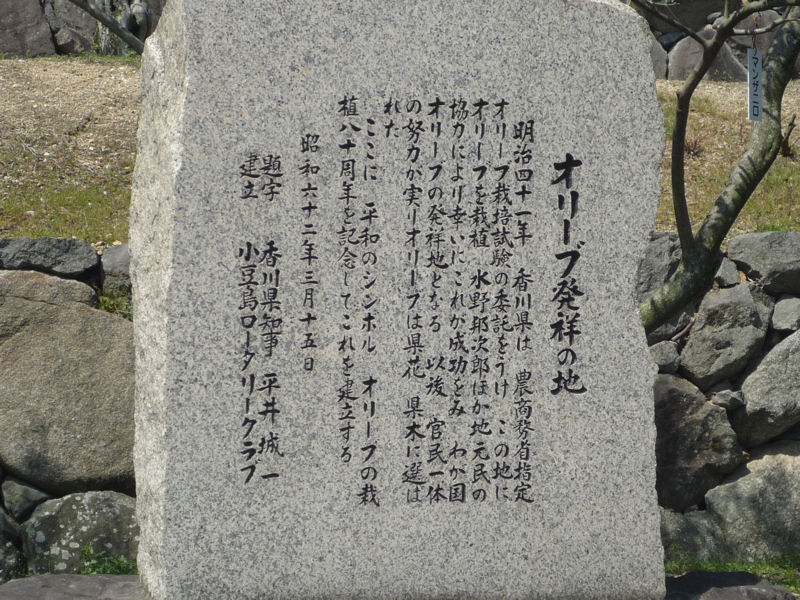 オリーブ発祥の地
明治四十一年 香川県は 農商務省指定
オリーブ栽培試験の委託をうけ この地に
オリーブを栽植 水野邦次郎ほか地元民の
協力により幸いにこれが成功をみ わが国
オリーブの発祥地となる 以後 官民一体
の努力が実りオリーブは県花 県木に選ば
れた
ここに 平和のシンボル オリーブの栽
植八十周年を記念してこれを建立する
昭和六十二年三月十五日
題字 香川県知事 平井城一
建立 小豆島ロータリークラブ
マンザニロ